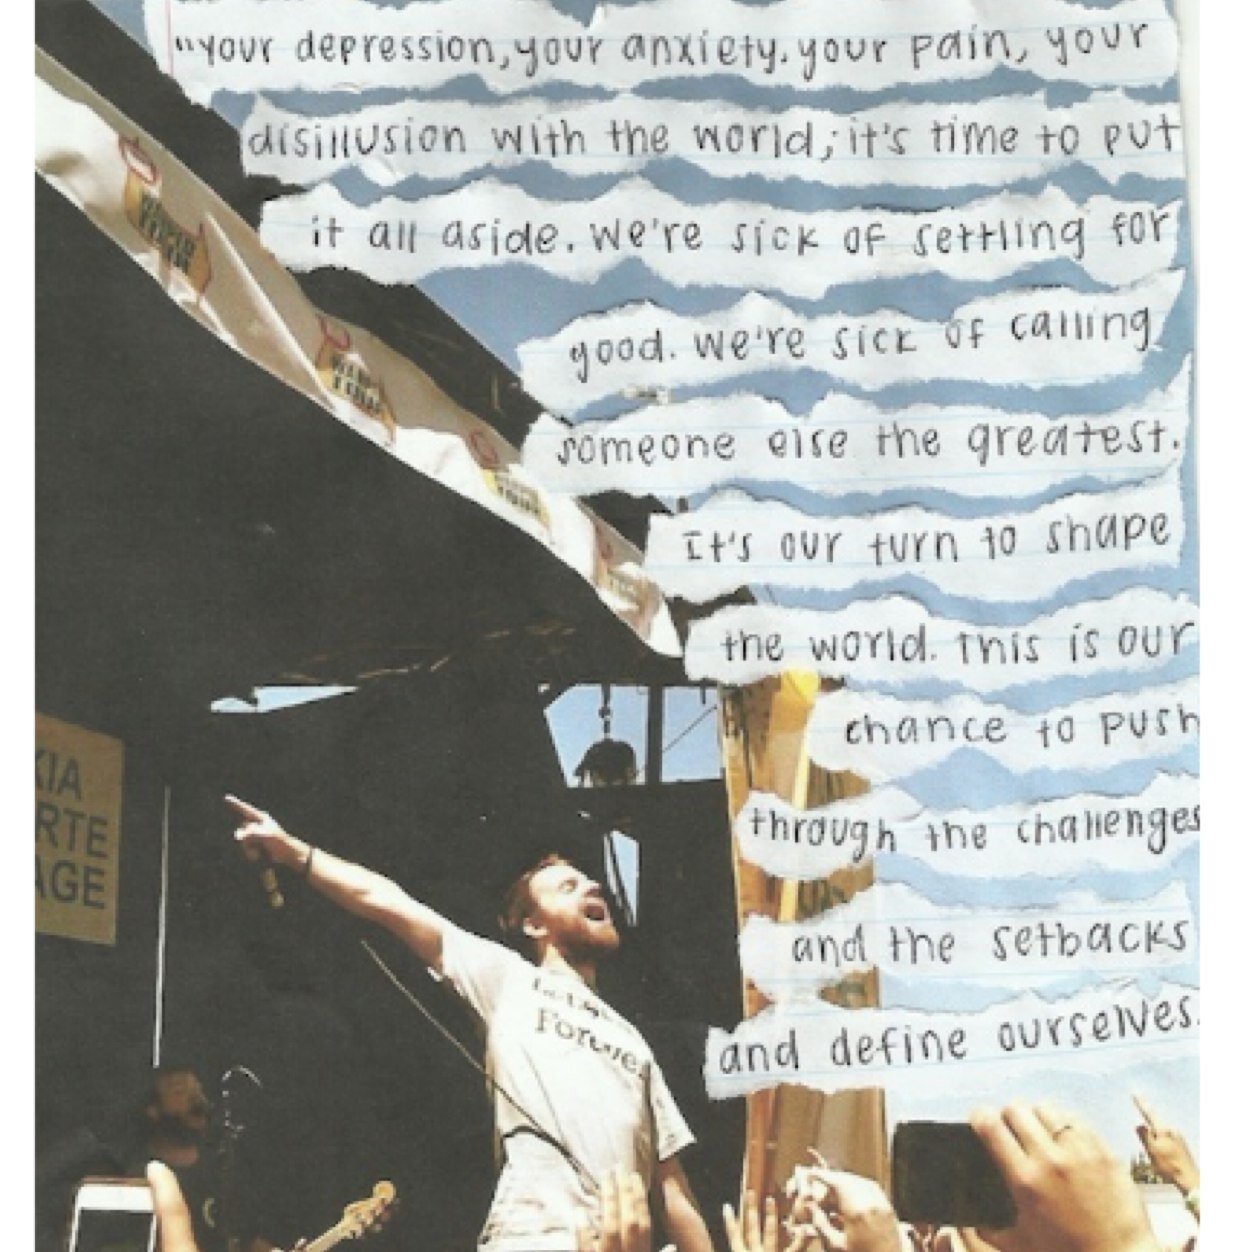 "your depression, your anxiety, your pain, your
disillusion with the world; it's time to put
it all aside. We're sick of settling for
good. We're sick of calling
someone else the greatest.
It's our turn to shape
the world. This is our
chance to push
through the challenges
and the setbacks
and define ourselves.
KIA
RTE
AGE
Forever